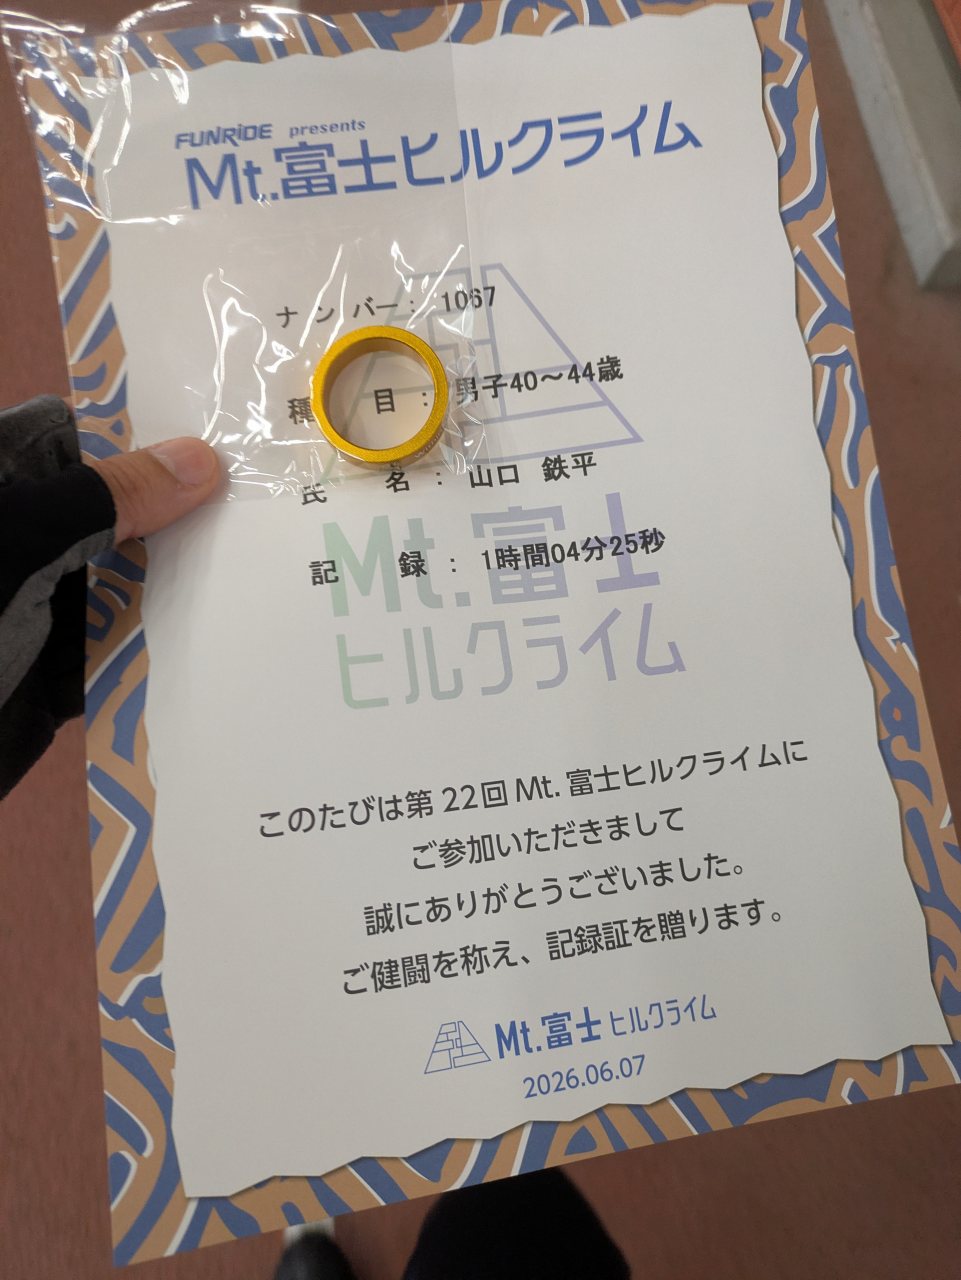 FUNRiDE presents
Mt.富士ヒルクライム
ナンバー： 1067
種 目： 男子40～44歳
氏 名： 山口 鉄平
記 録： 1時間04分25秒
Mt.富士
ヒルクライム
このたびは第 22回 Mt. 富士ヒルクライムに
ご参加いただきまして
誠にありがとうございました。
ご健闘を称え、記録証を贈ります。
Mt.富士 ヒルクライム
2026.06.07